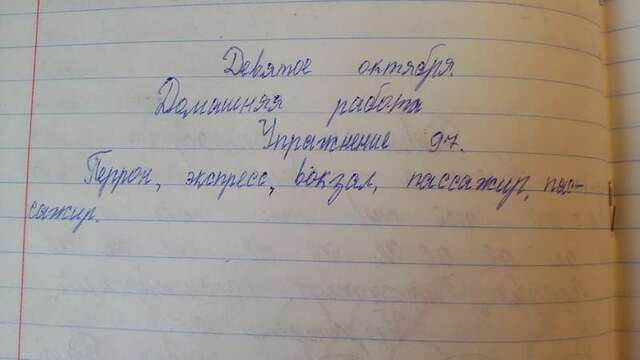 Девятое октября.
Домашняя работа
Упражнение 97.
Перрон, экспресс, вокзал, пассажир, пас-
сажир.